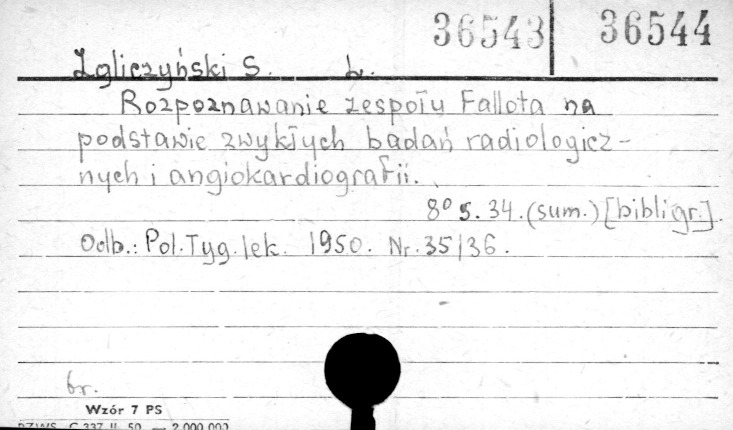 36543 36544
Zgliczyński S. L.
Rozpoznawanie zespołu Fallota na
podstawie zwykłych badań radiologicz-
nych i angiokardiografii.
8º s. 34. (sum.) [bibligr.].
Odb.: Pol. Tyg. lek. 1950. Nr. 35/36.
br.
Wzór 7 PS
PZWS. C 337 II. 50 — 2.000.000